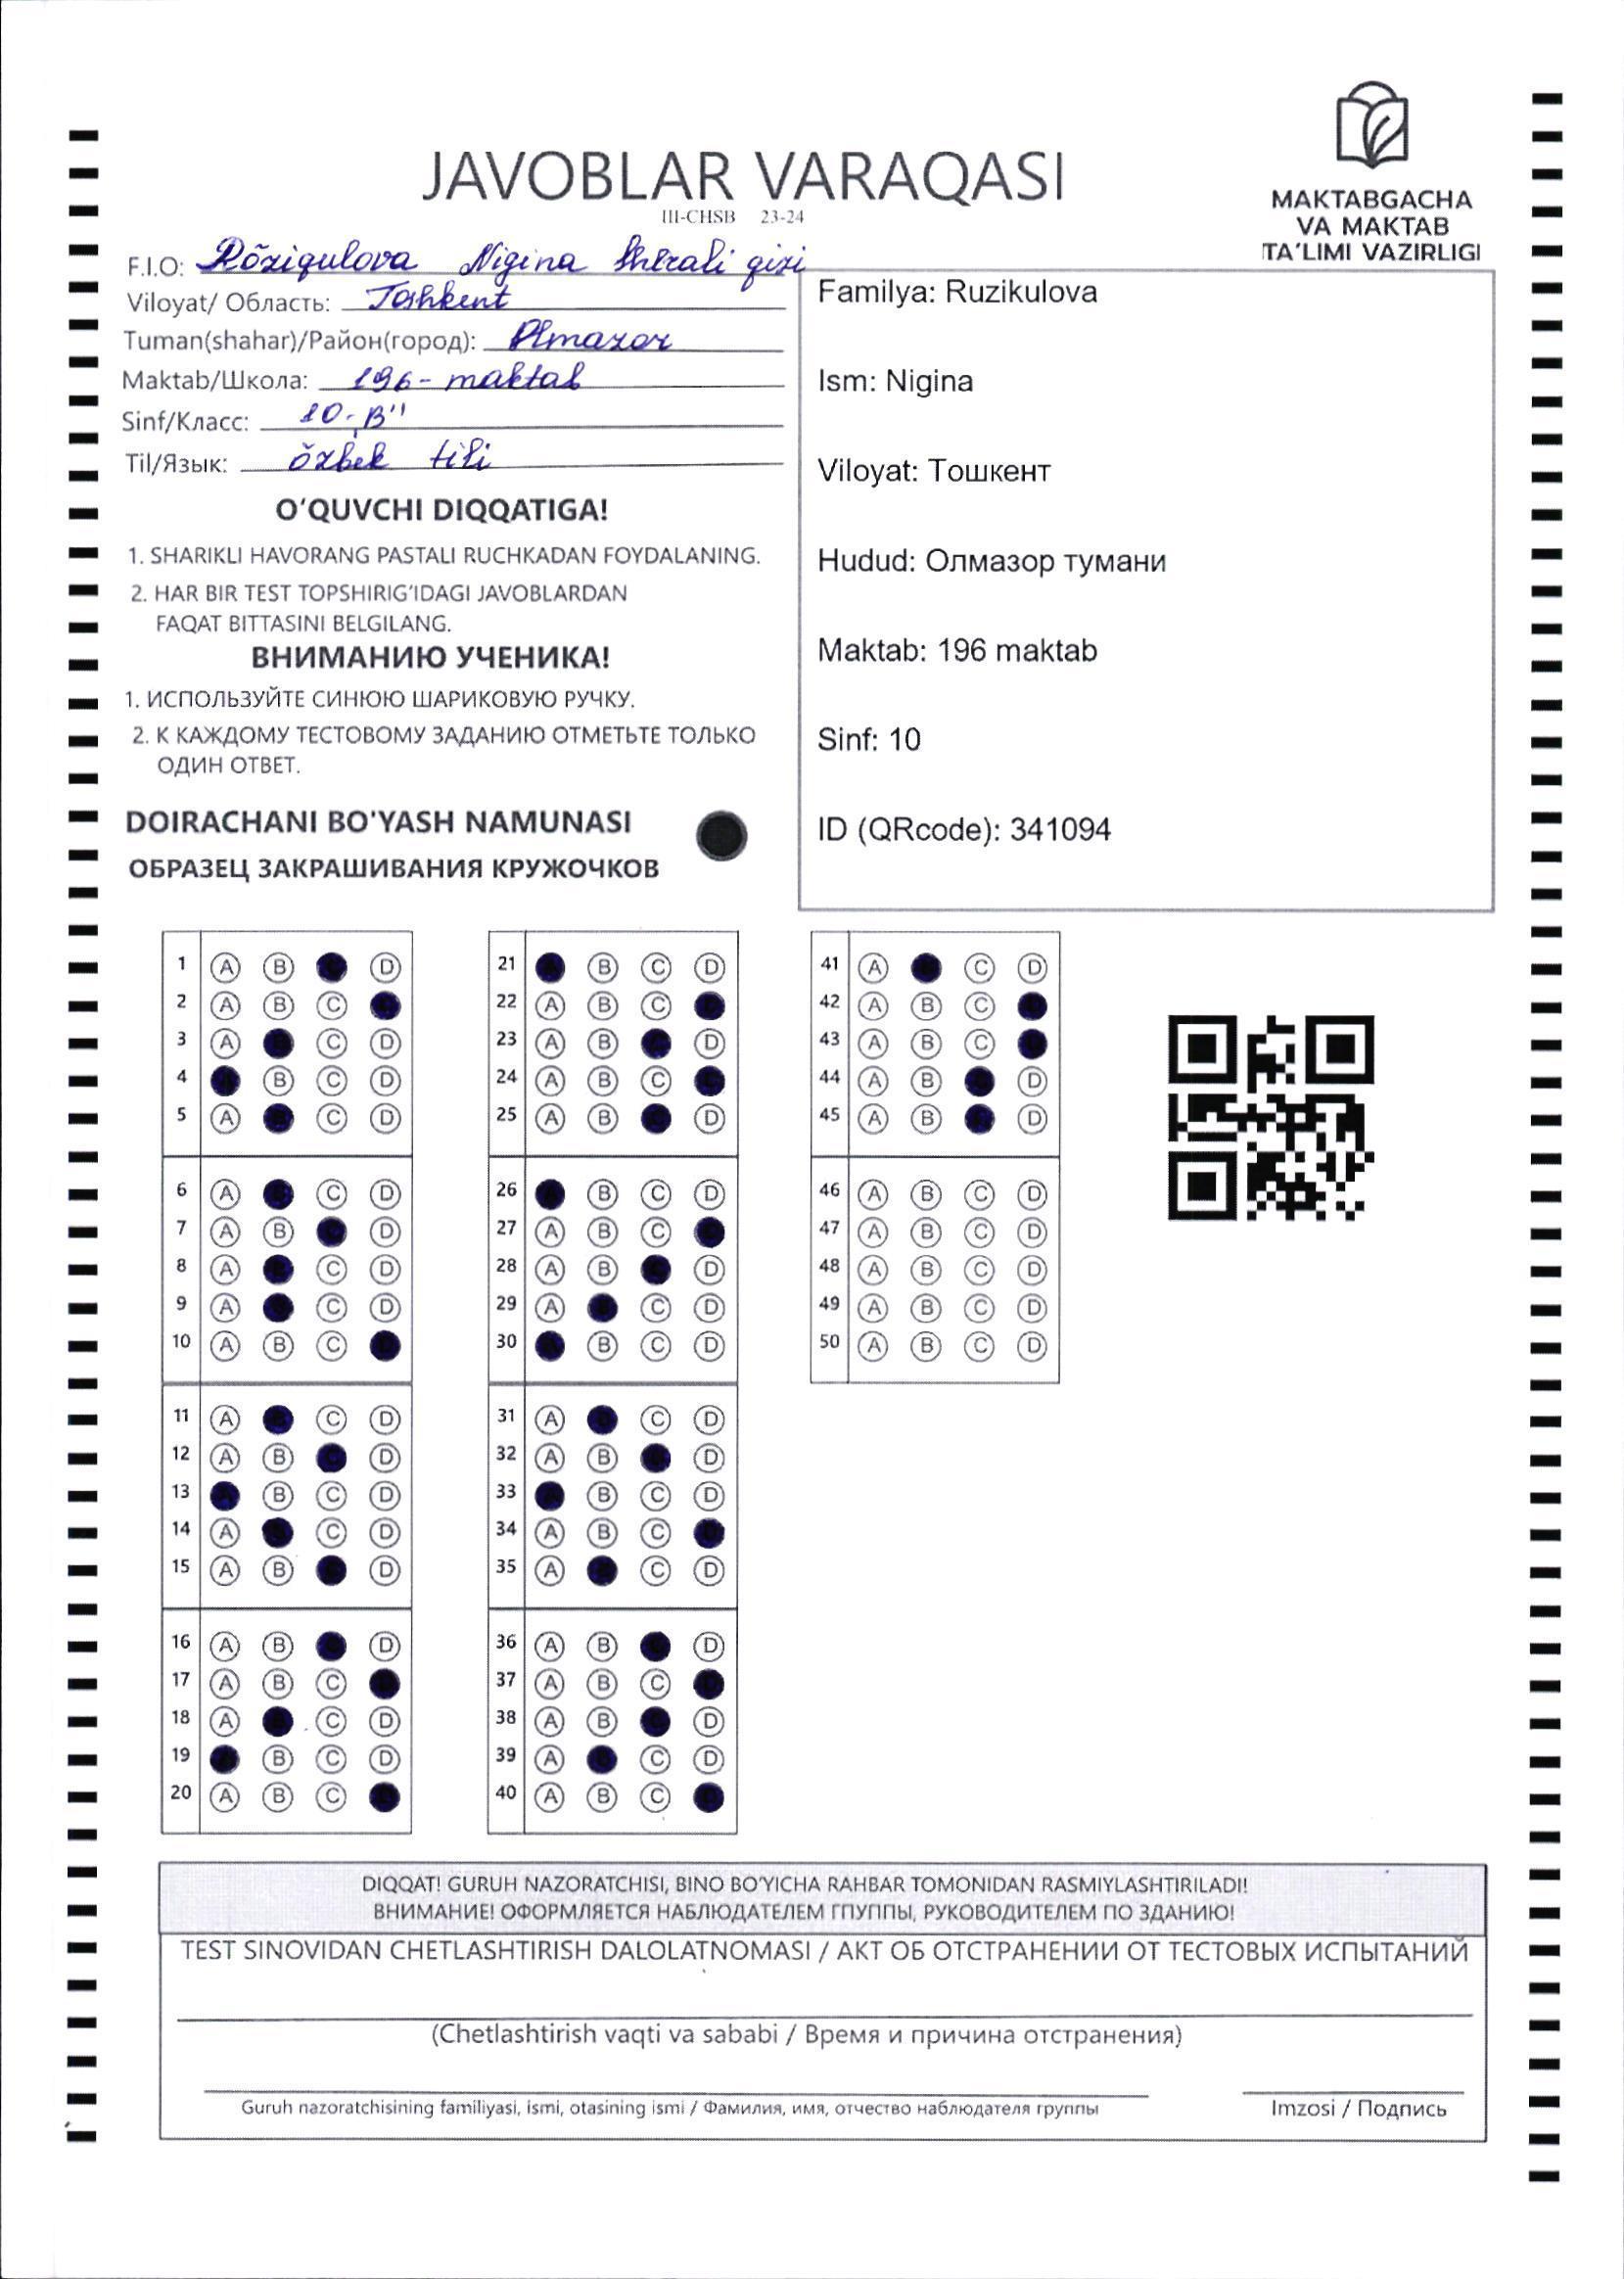 JAVOBLAR VARAQASI
III-CHSB 23-24
MAKTABGACHA
VA MAKTAB
TA'LIMI VAZIRLIGI
F.I.O: Rõziqulova Nigina Sherali qizi
Viloyat/ Область: Toshkent
Tuman(shahar)/Район(город): Olmazor
Maktab/Школа: 196- maktab
Sinf/Класс: 10-"B"
Til/Язык: õzbek tili
O'QUVCHI DIQQATIGA!
1. SHARIKLI HAVORANG PASTALI RUCHKADAN FOYDALANING.
2. HAR BIR TEST TOPSHIRIG'IDAGI JAVOBLARDAN
FAQAT BITTASINI BELGILANG.
ВНИМАНИЮ УЧЕНИКА!
1. ИСПОЛЬЗУЙТЕ СИНЮЮ ШАРИКОВУЮ РУЧКУ.
2. К КАЖДОМУ ТЕСТОВОМУ ЗАДАНИЮ ОТМЕТЬТЕ ТОЛЬКО
ОДИН ОТВЕТ.
DOIRACHANI BO'YASH NAMUNASI
ОБРАЗЕЦ ЗАКРАШИВАНИЯ КРУЖОЧКОВ
Familya: Ruzikulova
Ism: Nigina
Viloyat: Тошкент
Hudud: Олмазор тумани
Maktab: 196 maktab
Sinf: 10
ID (QRcode): 341094
1 A B D
2 A B C
3 A C D
4 B C D
5 A C D
6 A C D
7 A B D
8 A C D
9 A C D
10 A B C
11 A C D
12 A B D
13 B C D
14 A C D
15 A B D
16 A B D
17 A B C
18 A C D
19 B C D
20 A B C
21 B C D
22 A B C
23 A B D
24 A B C
25 A B D
26 B C D
27 A B C
28 A B D
29 A C D
30 B C D
31 A C D
32 A B D
33 B C D
34 A B C
35 A C D
36 A B D
37 A B C
38 A B D
39 A C D
40 A B C
41 A C D
42 A B C
43 A B C
44 A B D
45 A B D
46 A B C D
47 A B C D
48 A B C D
49 A B C D
50 A B C D
DIQQAT! GURUH NAZORATCHISI, BINO BO'YICHA RAHBAR TOMONIDAN RASMIYLASHTIRILADI!
ВНИМАНИЕ! ОФОРМЛЯЕТСЯ НАБЛЮДАТЕЛЕМ ГПУППЫ, РУКОВОДИТЕЛЕМ ПО ЗДАНИЮ!
TEST SINOVIDAN CHETLASHTIRISH DALOLATNOMASI / АКТ ОБ ОТСТРАНЕНИИ ОТ ТЕСТОВЫХ ИСПЫТАНИЙ
(Chetlashtirish vaqti va sababi / Время и причина отстранения)
Guruh nazoratchisining familiyasi, ismi, otasining ismi / Фамилия, имя, отчество наблюдателя группы
Imzosi / Подпись